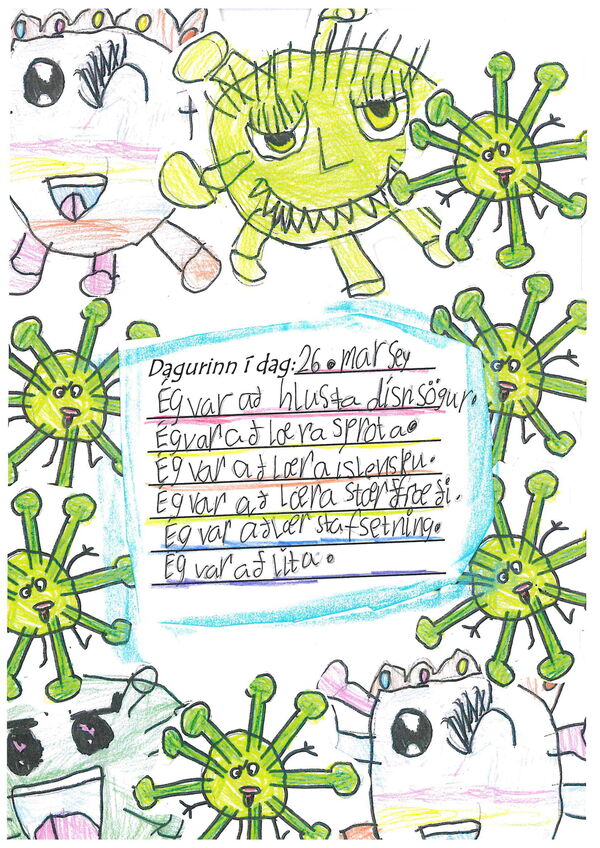 Dagurinn í dag: 26. mars ey
Ég var að hlusta dísnsögur.
Ég var að læra sprota.
Ég var að læra íslensku.
Ég var að læra stærðfræði.
Ég var að lær stafsetning.
Ég var að lita.